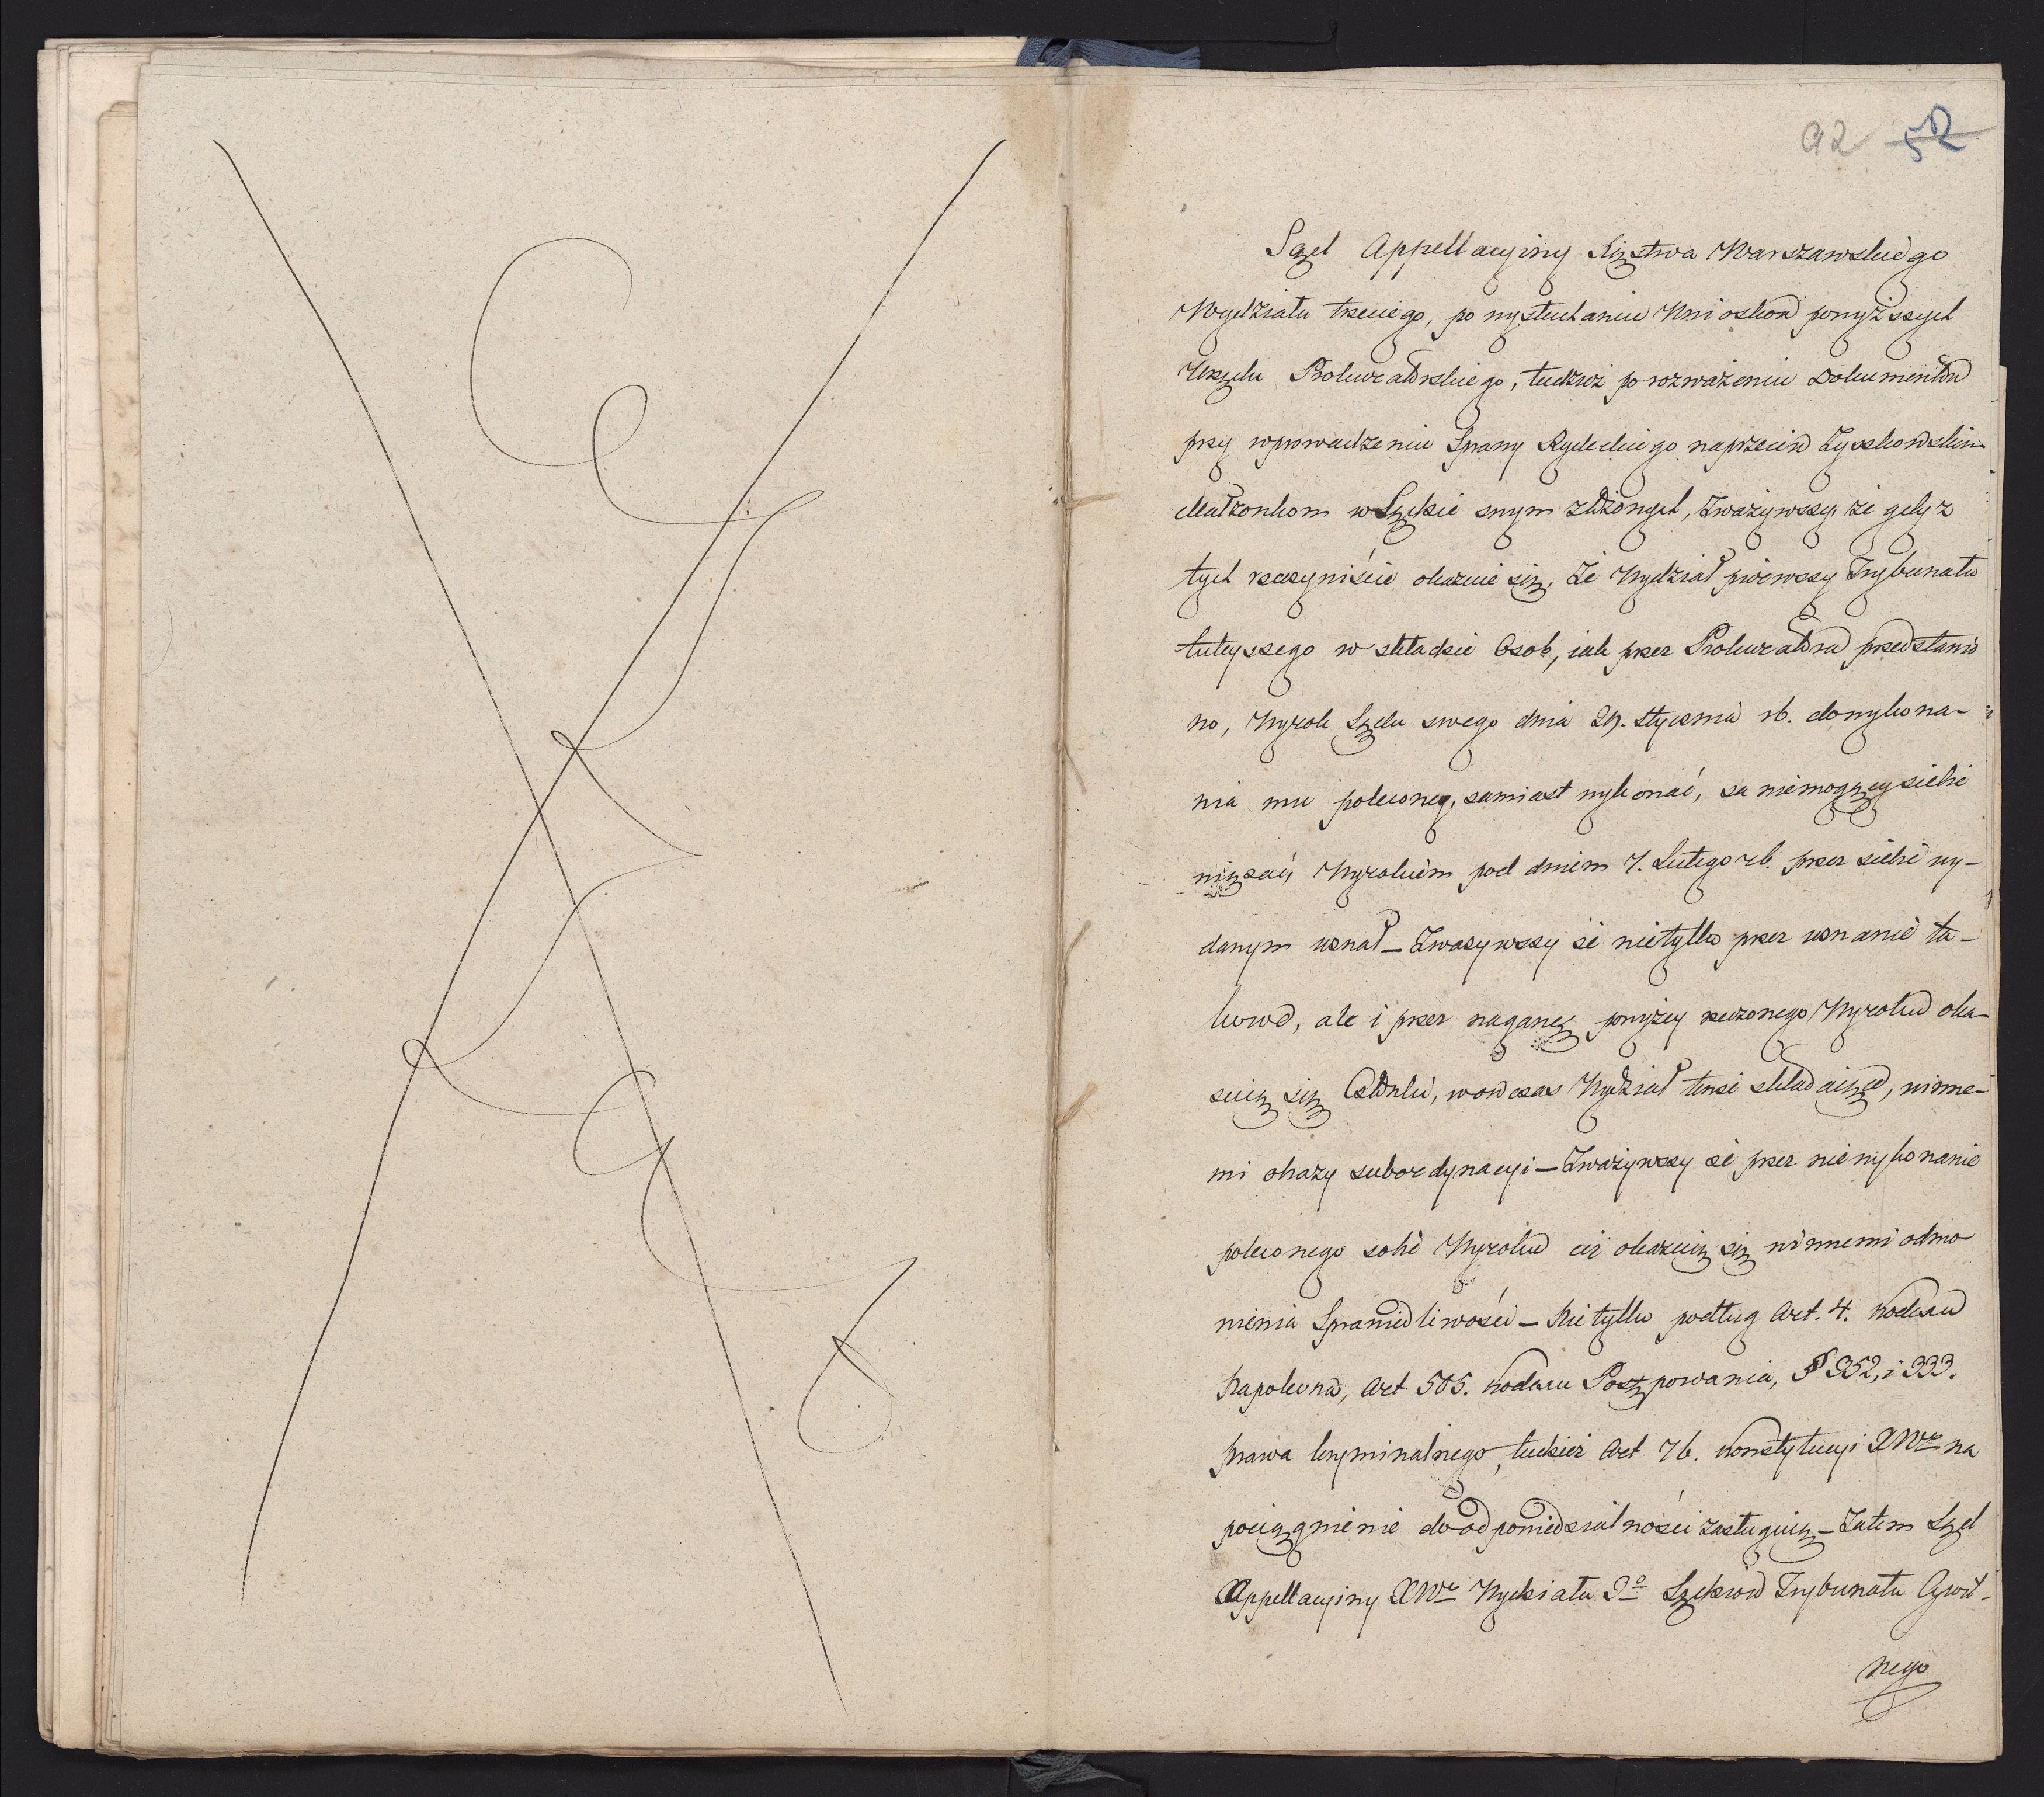 92 52
Sąd Appellacyiny Xięstwa Warszawskiego
Wydziału trzeciego, po wysłuchaniu Wnioskow powyższych
Urzędu Prokuratorskiego, tudzież po rozważeniu Dokumentow
przy wprowadzeniu Sprawy Rydeckiego naprzeciw Łyszkowskim
Małżonkom w Sądzie swym złożonych, Zważywszy że gdy z
tych rzeczywiście okazuie się, Że Wydział pierwszy Trybunału
tuteyszego w składzie Osob, iak przez Prokuratora przedstawio
no, Wyrok Sądu swego dnia 29. Stycznia rb. do wykona-
nia mu poleconey, zamiast wykonać, za niemogący siebie
wiązać, Wyrokiem pod dniem 7. Lutego rb. przez siebie wy-
danym uznał – Zważywszy że nietylko przez uznanie ta-
kowe, ale i przez naganę powyżey rzeczonego Wyroku oka-
zuią się Członki, wowczas Wydział tenże składaiące, winne-
mi obrazy subordynacyi – Zważywszy że przez niewykonanie
poleconego sobie Wyroku ciż okazuią się winnemi odmo
wienia Sprawiedliwości – Nietylko podług Art. 4. Kodexu
Napoleona, Art 505. Kodexu Postępowania, § 352, i 333.
Prawa kryminalnego, tudzież Art 76. Konstytucyi XWgo na
pociągnienie do odpowiedzialności zasługuią – Zatem Sąd
Appellacyiny XWgo Wydziału 3o Sędziow Trybunału Cywil-
nego